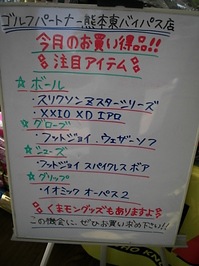 ゴルフパートナー熊本東バイパス店
今月のお買い得品!!
注目アイテム
☆ボール
・スリクソン Zスターシリーズ
・XXIO XD エアロ
☆グローブ
・フットジョイ ウェザーソフ
☆シューズ
・フットジョイ スパイクレス ボア
☆グリップ
・イオミック オーパス2
くまモングッズもありますよ
この機会に、ぜひお買い求め下さい!!